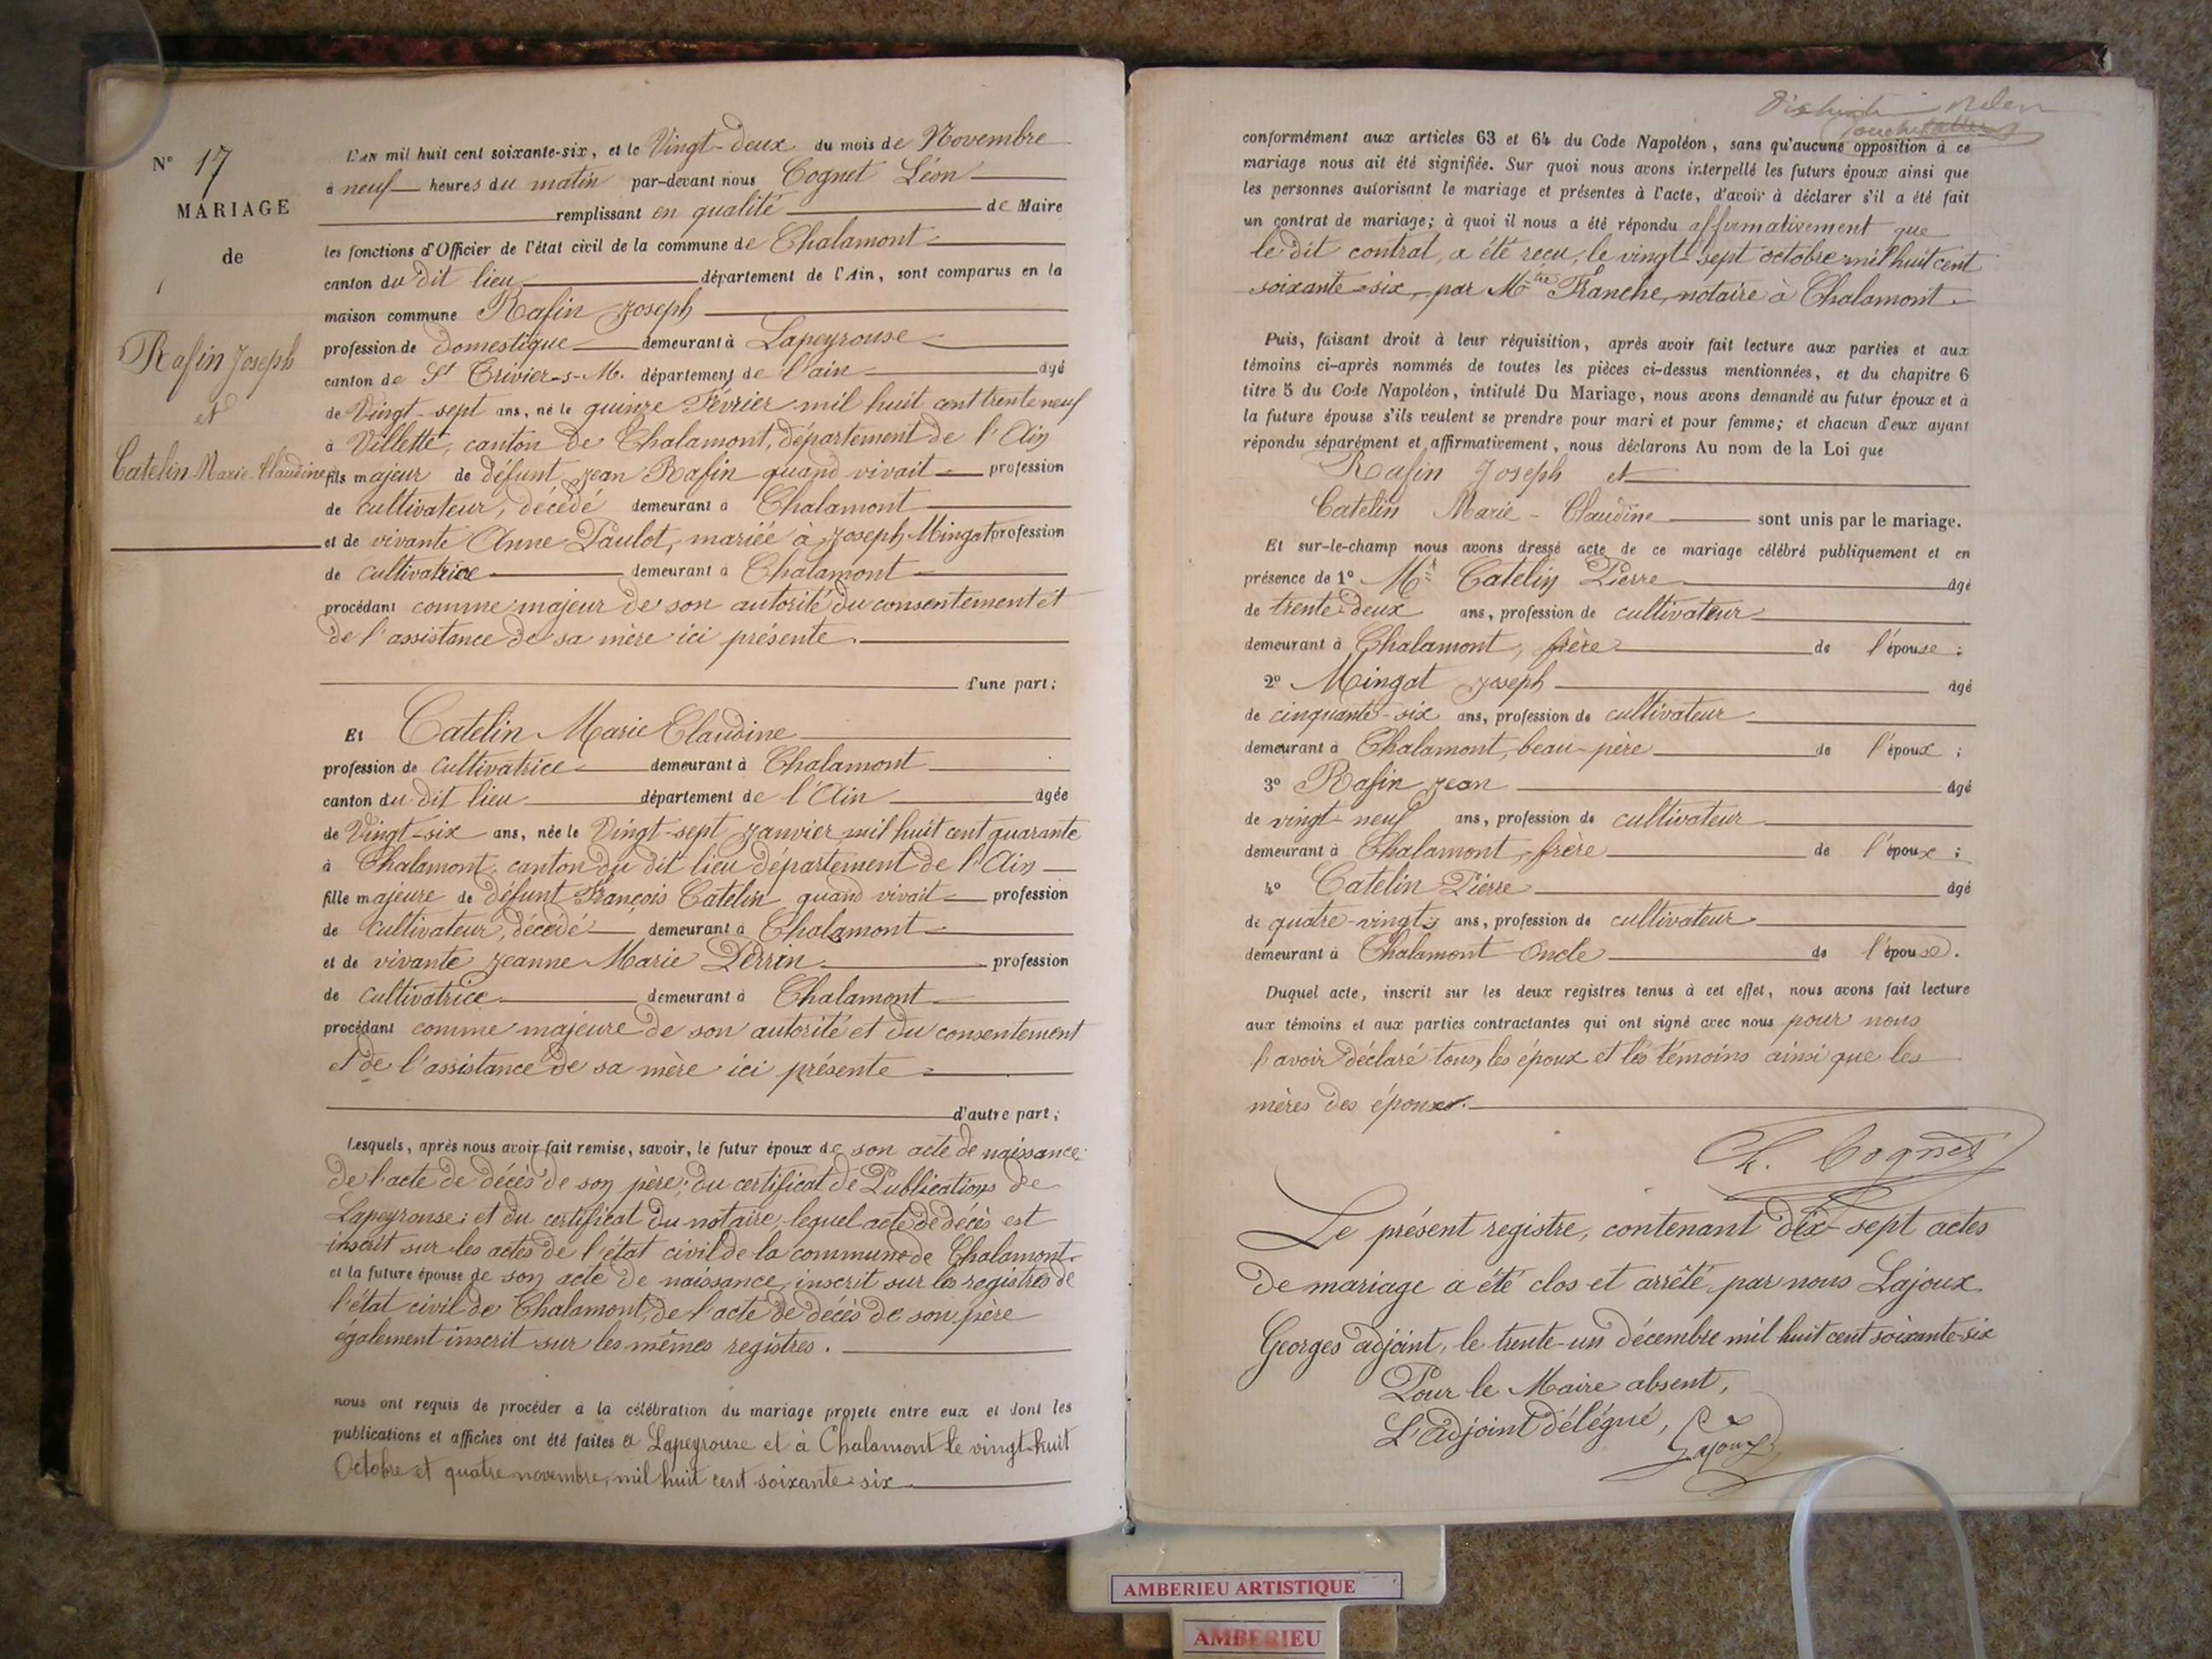 N° 17
MARIAGE
de
Rafin Joseph
et
Catelin Marie-Claudine
L'AN mil huit cent soixante-six, et le Vingt-deux du mois de Novembre
à neuf heures du matin par-devant nous Cognet Léon
remplissant en qualité de Maire
les fonctions d'Officier de l'état civil de la commune de Chalamont
canton du dit lieu département de l'Ain, sont comparus en la
maison commune Rafin Joseph
profession de Domestique demeurant à Lapeyrouse
canton de St Trivier-s-M. département de l'ain âgé
de Vingt-sept ans, né le quinze Février mil huit cent trente neuf
à Villette, canton de Chalamont, département de l'Ain
fils majeur de défunt Jean Rafin quand vivait profession
de cultivateur, décédé demeurant à Chalamont
et de vivante Anne Paulot, mariée à Joseph Mingat profession
de cultivatrice demeurant à Chalamont
procédant comme majeur de son autorité du consentement et
de l'assistance de sa mère ici présente.
d'une part;
Et Catelin Marie Claudine
profession de cultivatrice demeurant à Chalamont
canton du dit lieu département de l'Ain âgée
de Vingt-six ans, née le Vingt-sept Janvier mil huit cent quarante
à Chalamont, canton du dit lieu département de l'Ain
fille majeure de défunt François Catelin quand vivait profession
de cultivateur, décédé demeurant à Chalamont
et de vivante Jeanne Marie Perrin profession
de cultivatrice demeurant à Chalamont
procédant comme majeure de son autorité et du consentement
et de l'assistance de sa mère ici présente
d'autre part;
Lesquels, après nous avoir fait remise, savoir, le futur époux de son acte de naissance
de l'acte de décès de son père; du certificat de Publications de
Lapeyrouse; et du certificat du notaire, lequel acte de décès est
inscrit sur les actes de l'état civil de la commune de Chalamont.
et la future épouse de son acte de naissance, inscrit sur les registres de
l'état civil de Chalamont, de l'acte de décès de son père
également inscrit sur les mêmes registres.
nous ont requis de procéder à la célébration du mariage projeté entre eux et dont les
publications et affiches ont été faites à Lapeyrouse et à Chalamont le vingt-huit
Octobre et quatre novembre, mil huit cent soixante-six
conformément aux articles 63 et 64 du Code Napoléon, sans qu'aucune opposition à ce
mariage nous ait été signifiée. Sur quoi nous avons interpellé les futurs époux ainsi que
les personnes autorisant le mariage et présentes à l'acte, d'avoir à déclarer s'il a été fait
un contrat de mariage; à quoi il nous a été répondu affirmativement que
le dit contrat, a été reçu, le vingt-sept octobre mil huit cent
soixante-six, par Mtre Franche, notaire à Chalamont.
Puis, faisant droit à leur réquisition, après avoir fait lecture aux parties et aux
témoins ci-après nommés de toutes les pièces ci-dessus mentionnées, et du chapitre 6
titre 5 du Code Napoléon, intitulé Du Mariage, nous avons demandé au futur époux et à
la future épouse s'ils veulent se prendre pour mari et pour femme; et chacun d'eux ayant
répondu séparément et affirmativement, nous déclarons Au nom de la Loi que
Rafin Joseph et
Catelin Marie-Claudine sont unis par le mariage.
Et sur-le-champ nous avons dressé acte de ce mariage célébré publiquement et en
présence de 1° Mr Catelin Pierre âgé
de trente-deux ans, profession de cultivateur
demeurant à Chalamont, frère de l'épouse;
2° Mingat Joseph âgé
de cinquante-six ans, profession de cultivateur
demeurant à Chalamont, beau-père de l'époux;
3° Rafin Jean âgé
de vingt-neuf ans, profession de cultivateur
demeurant à Chalamont, frère de l'époux;
4° Catelin Pierre âgé
de quatre-vingts ans, profession de cultivateur
demeurant à Chalamont Oncle de l'épouse.
Duquel acte, inscrit sur les deux registres tenus à cet effet, nous avons fait lecture
aux témoins et aux parties contractantes qui ont signé avec nous pour nous
l'avoir déclaré tous, les époux et les témoins ainsi que les
mères des époux.
Cognet
Le présent registre, contenant dix-sept actes
de mariage a été clos et arrêté par nous Lajoux
Georges adjoint, le trente-un décembre mil huit cent soixante-six
Pour le Maire absent,
L'adjoint délégué,
Lajoux
AMBERIEU ARTISTIQUE
AMBERIEU